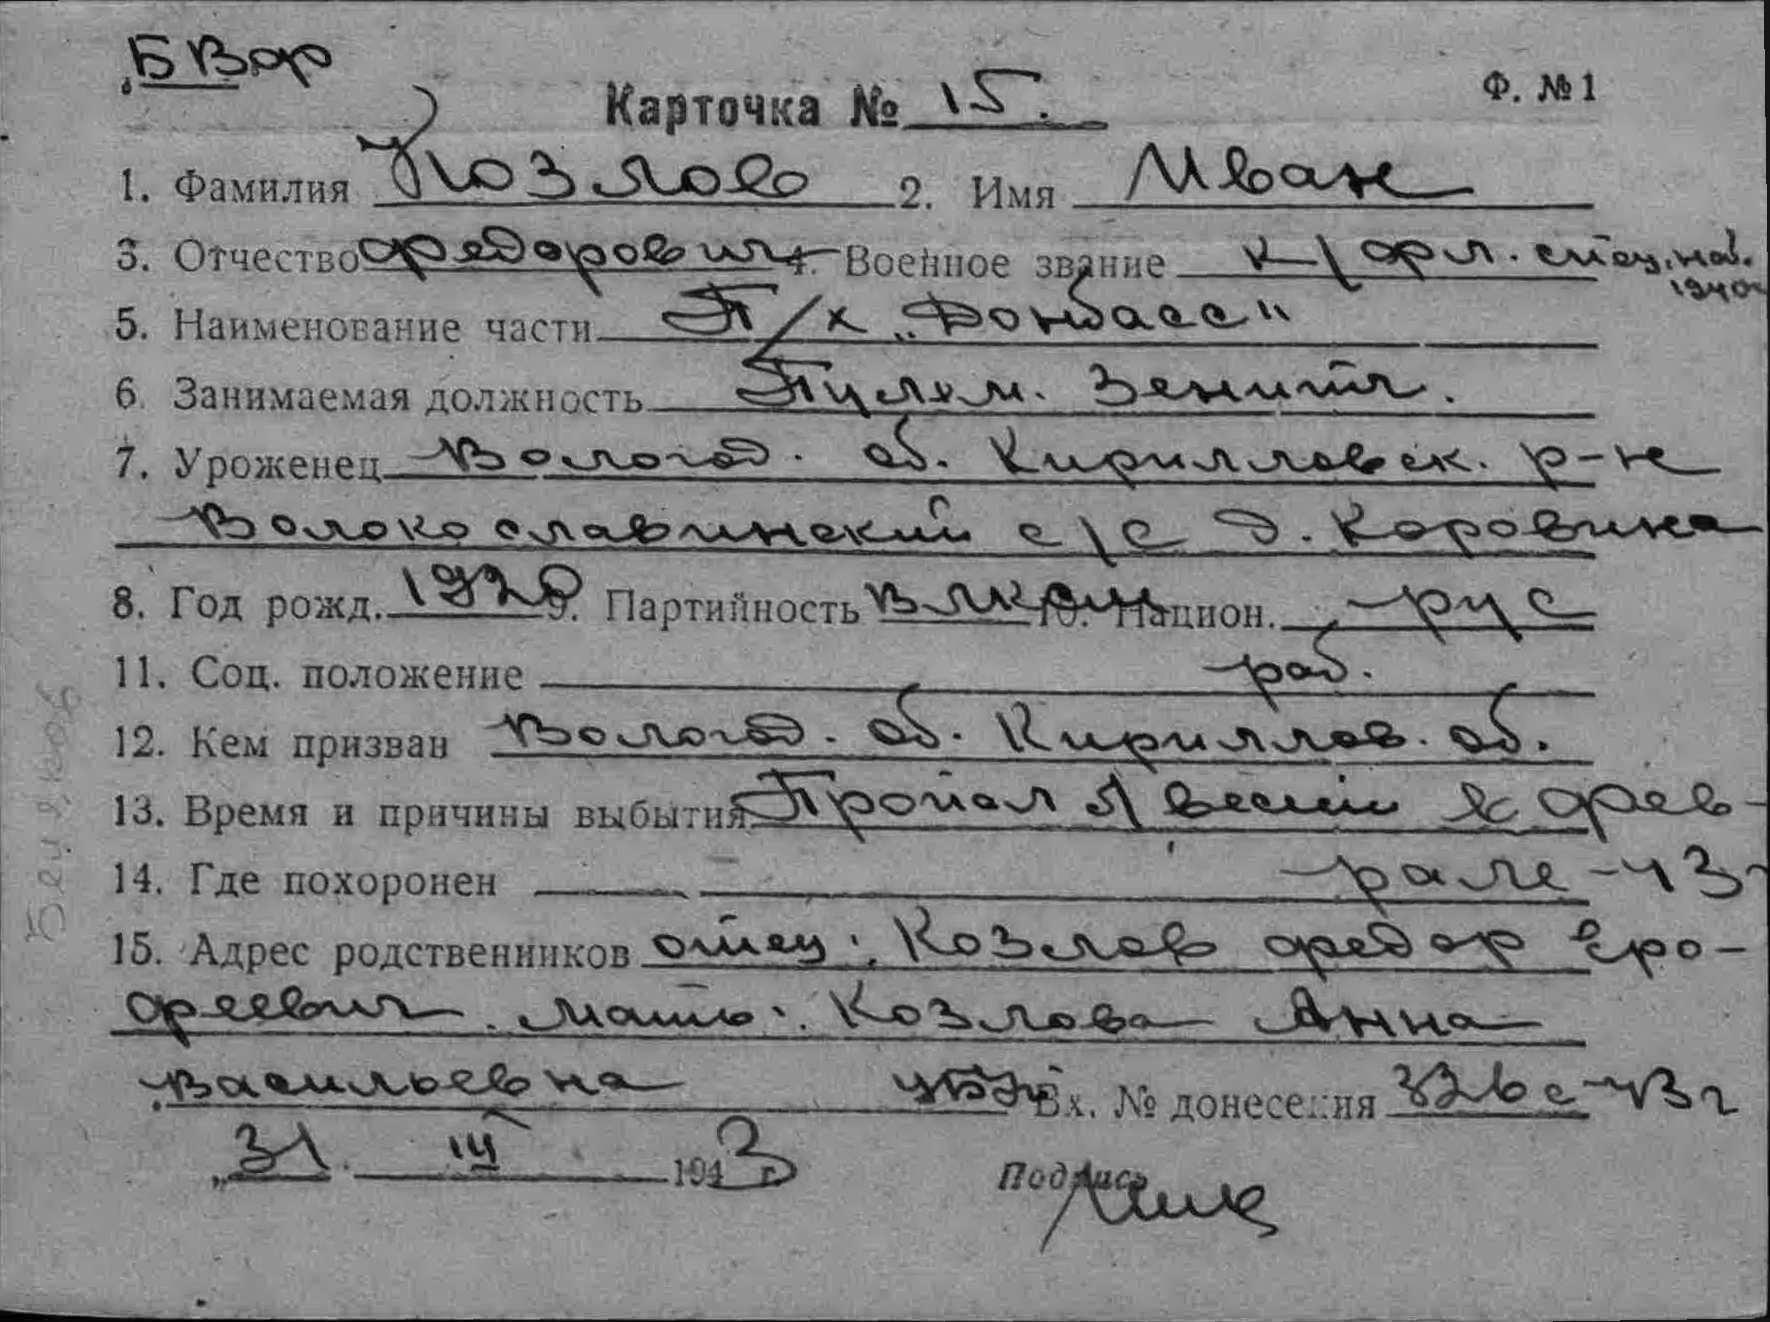 БВор
Карточка № 15.
Ф. №1
1. Фамилия Козлов 2. Имя Иван
3. Отчество Федорович 4. Военное звание к/фл. спец. наб.
1940г
5. Наименование части Т/х „Донбасс"
6. Занимаемая должность Пулем. Зенитч.
7. Уроженец Вологод. об. Кирилловск. р-н
Волокославинский с/с д. Коровина
8. Год рожд. 1920 9. Партийность ВЛКСМ 10. Национ. рус
11. Соц. положение раб.
12. Кем призван Вологод. об. Кириллов. об.
13. Время и причины выбытия Пропал б/вести в фев-
14. Где похоронен — рале -43г
15. Адрес родственников отец: Козлов Федор Еро-
феевич. Мать: Козлова Анна
Васильевна Вх. № донесения 326с-43г
„31" III 1943 г.
Подпись